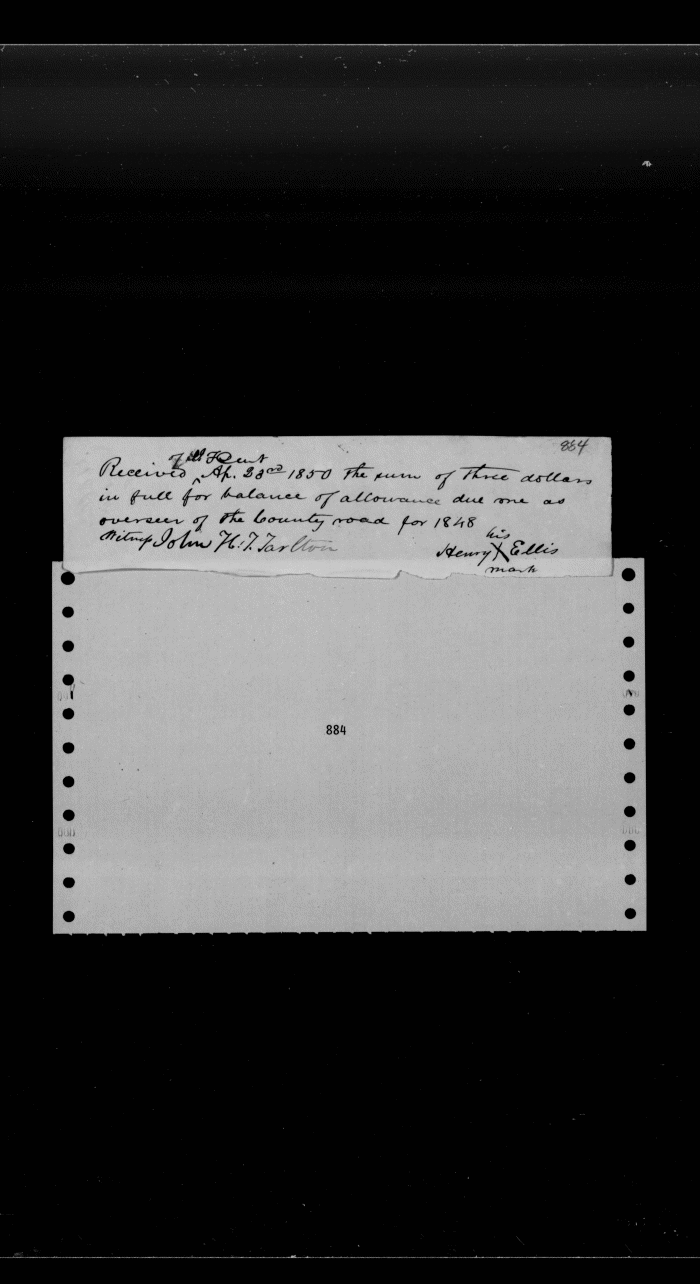 884
of Kent
Received Ap. 23rd 1850 the sum of three dollars
in full for balance of allowance due me as
overseer of the County road for 1848
Witness John H. T. Tarlton
his
Henry X Ellis
mark
884